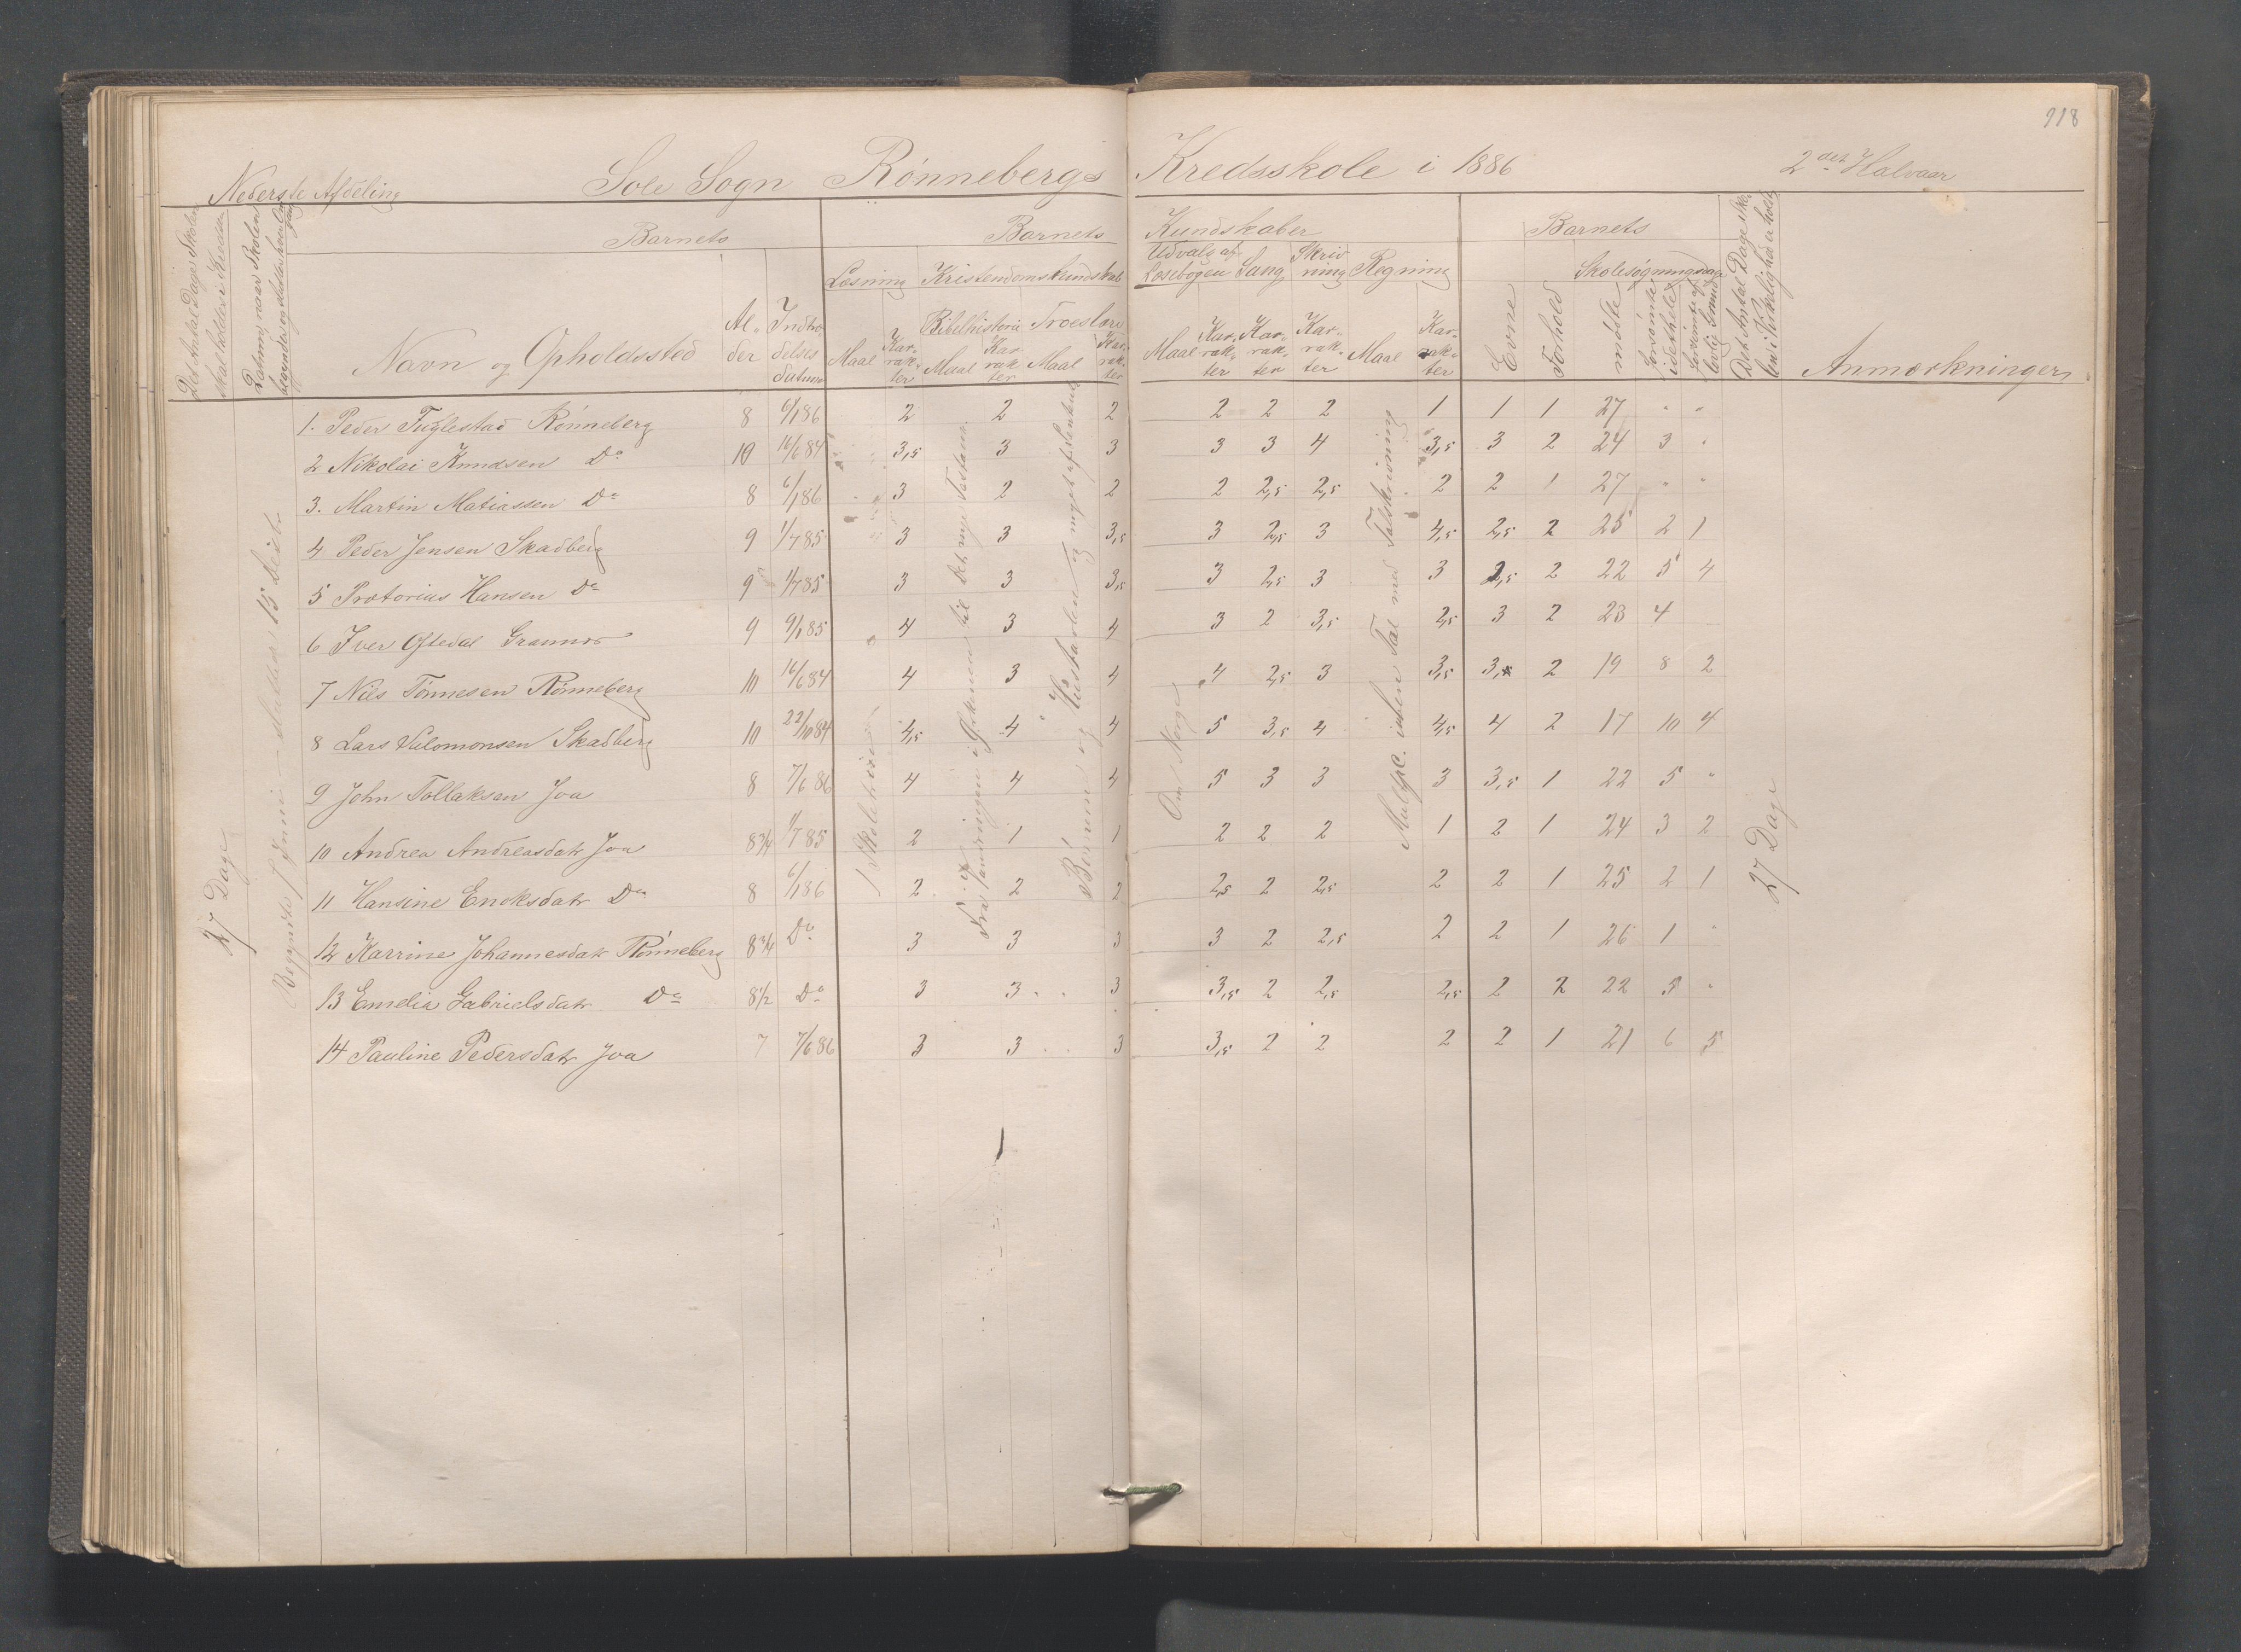 118
Nederste Afdeling Sole Sogn Rønnebergs Kredsskole i 1886 2det Halvaar
Det Antal Dage Skolen skal holdes i Kredsen
Datum, naar Skolen begynder og slutter hver Omgang
Barnets
Navn og Opholdssted
Alder
Indtrædelsesdatum
Barnets Kundskaber
Læsning Kristendomskundskab
Udvalg af Læsebogen Sang Skrivning Regning
Bibelhistorie Troeslære
Maal Karrakter Maal Karrakter Maal Karrakter
Maal Karrakter Karrakter Karrakter Maal Karrakter
Barnets
Evne Forhold
Skolesøgningsdage
mødte forsømte i det hele forsømte af lovlig Grund
Det Antal Dage Skolen i Virkelighed er holdt
Anmærkninger
1. Peder Fuglestad Rønneberg 8 6/1 86 2 2 2 2 2 2 1 1 1 27 " "
2 Nikolai Knudsen Do 10 16/6 84 3,5 3 3 3 3 4 3,5 3 2 24 3 "
3. Martin Matiassen Do 8 6/1 86 3 2 2 2 2,5 2,5 2 2 1 27 " "
4 Peder Jensen Skadberg 9 1/7 85 3 3 3,5 3 2,5 3 4,5 2,5 2 25 2 1
5 Prætorius Hansen Do 9 1/7 85 3 3 3,5 3 2,5 3 3 2,5 2 22 5 4
6 Iver Oftedal 9 9/1 85 4 3 4 3 2 3,5 2,5 3 2 23 4
7 Nils Tønnesen Rønneberg 10 16/6 84 4 3 4 4 2,5 3 3,5 3,5 2 19 8 2
8 Lars Salomonsen Skadberg 10 22/10 84 4,5 4 4 5 3,5 4 4,5 4 2 17 10 4
9 John Tollaksen Joa 8 7/6 86 4 4 4 5 3 3 3 3,5 1 22 5 "
10 Andrea Andreasdatr Joa 8 3/4 1/7 85 2 1 1 2 2 2 1 2 1 24 3 2
11 Hansine Enoksdatr Do 8 6/1 86 2 2 2 2,5 2 2,5 2 2 1 25 2 1
12 Karrine Johannesdatr Rønneberg 8 3/4 Do 3 3 3 3 2 2,5 2 2 1 26 1 "
13 Emelia Gabrielsdatr Do 8 1/2 Do 3 3 3 3,5 2 2,5 2,5 2 2 22 5 "
14 Pauline Pedersdatr Joa 7 7/6 86 3 3 3 3,5 2 2 2 2 1 21 6 5
27 Dage
Begyndte 7 Juni - sluttede 15 Decbr
I Skoletiden
Fra Vandringen i Ørkenen til det nye Testam.
Børnene og Hustavlen og noget af Forklar.
Om Norge
Multipl. uben. Tal med Talskrivning
27 Dage